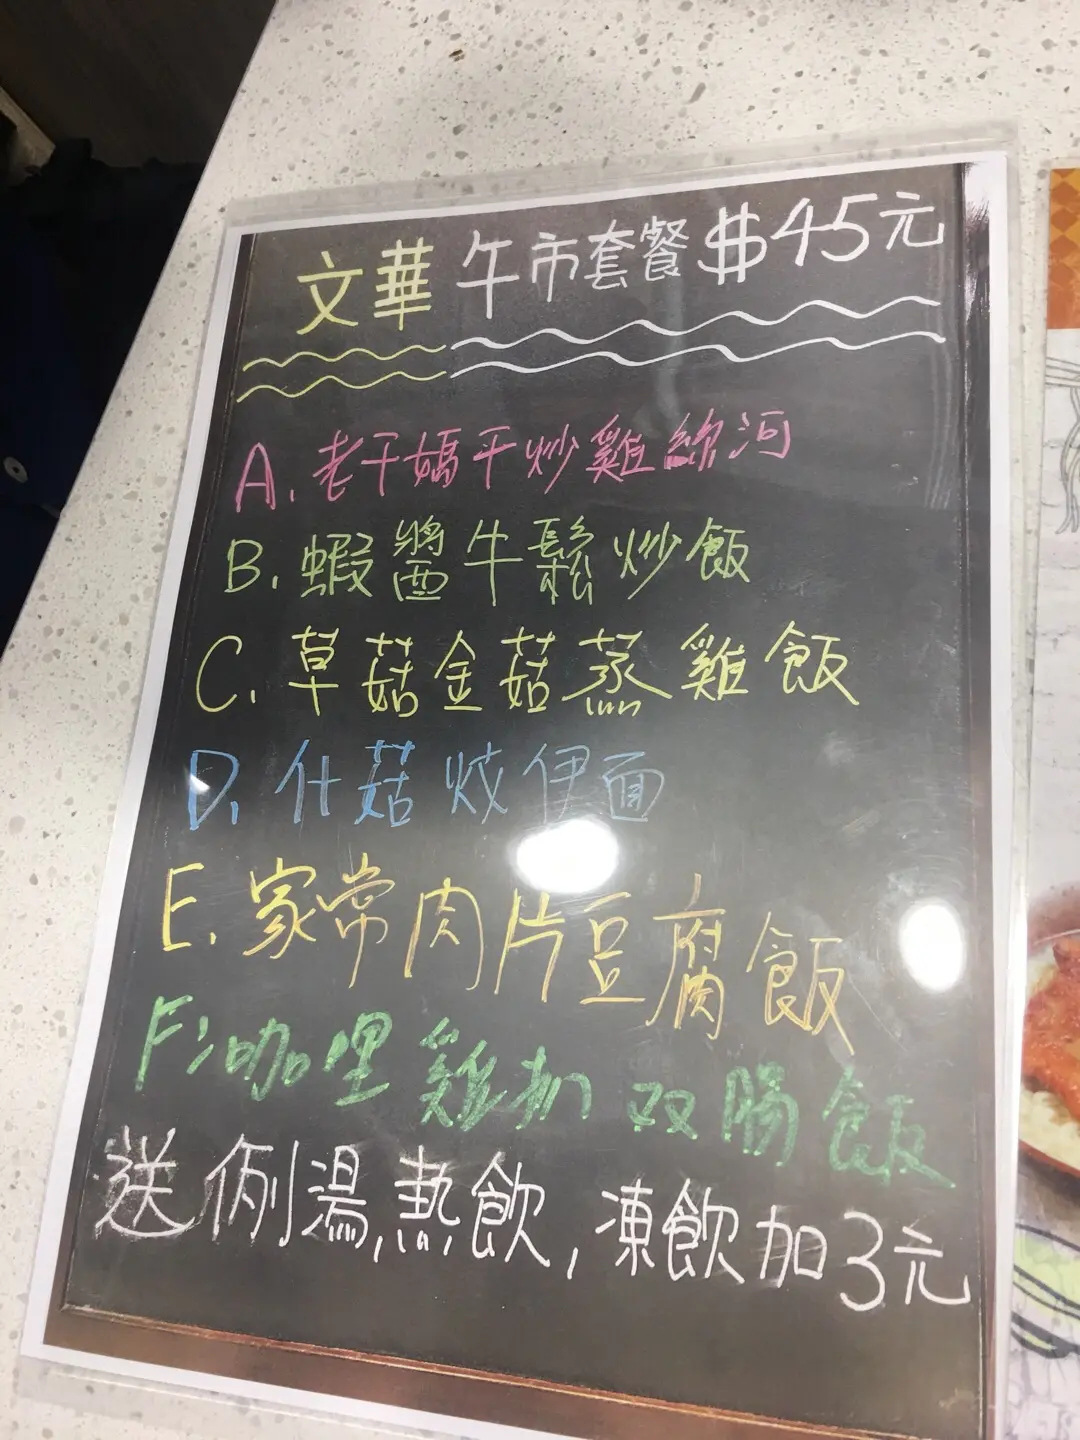 文華 午市套餐 $45元
A. 老干媽干炒雞絲河
B. 蝦醬牛鬆炒飯
C. 草菇金菇蒸雞飯
D. 什菇炆伊面
E. 家常肉片豆腐飯
F: 咖哩雞扒双腸飯
送例湯,熱飲,凍飲加3元